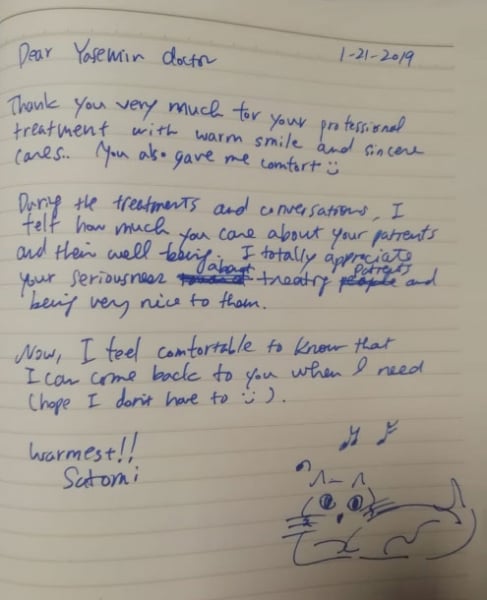 Dear Yasemin doctor 1-21-2019
Thank you very much for your professional
treatment with warm smile and sincere
cares.. You also gave me comfort :)
During the treatments and conversations, I
felt how much you care about your patients
and their well being. I totally appreciate
your seriousness about treatry patients and
being very nice to them.
Now, I feel comfortable to know that
I can come back to you when I need
(hope I don't have to :) ).
Warmest!!
Satomi